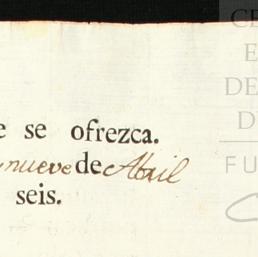 e se ofrezca.
nueve de Abril
seis.
CE
E
DE
D
FU
C